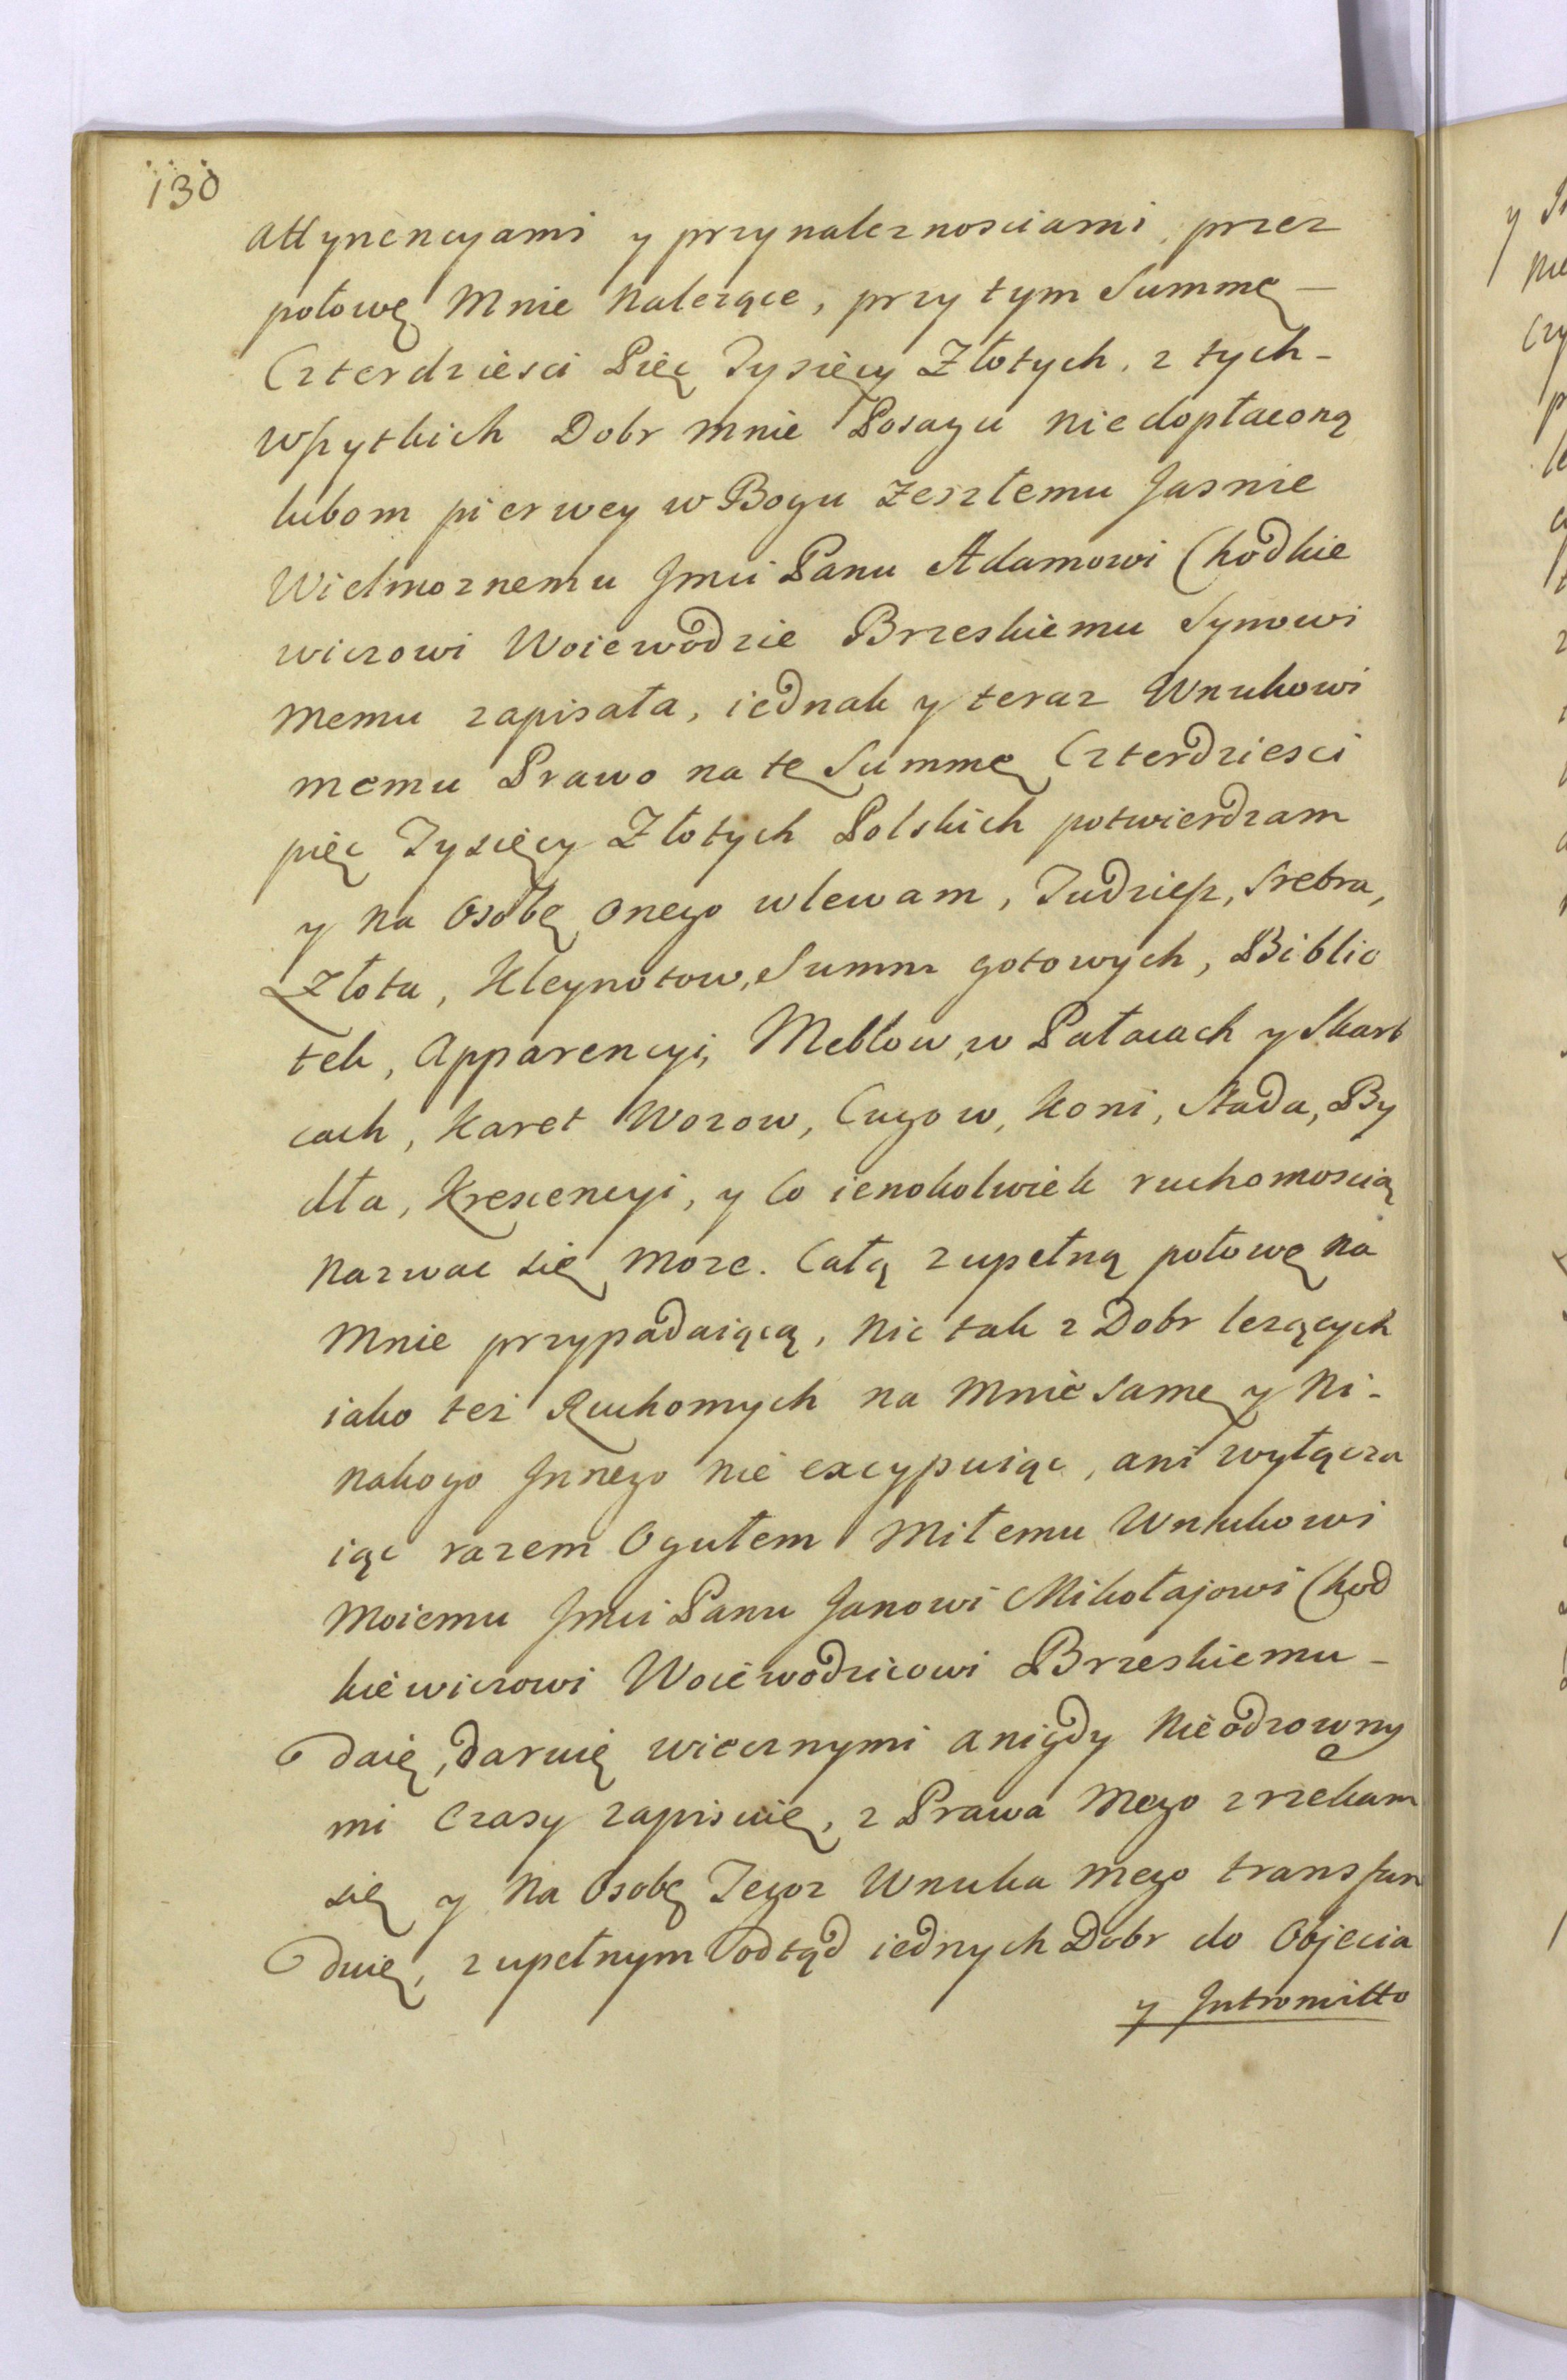 130
attynencyami y przynaleznosciami, przez
połowę Mnie Nalezące, przy tym Summę —
Czterdziesci Pięc Tysięcy Złotych, z tych -
wszytkich Dobr mnie Posagu niedopłaconą
lubom pierwey w Bogu zeszłemu Jasnie
Wielmoznemu Jmci Panu Adamowi Chodkie
wiczowi Woiewodzie Brzeskiemu Synowi
memu zapisała, iednak y teraz Wnukowi
memu Prawo na tę Summę Czterdziesci
pięc Tysięcy Złotych Polskich potwierdzam
y na Osobę onego wlewam, Tudziesz, Srebra,
Złota, Kleynotow, Summ gotowych, Biblio
tek, Apparencyi, Meblow, w Pałacach y Skarb
cach, Karet Wozow, Cugow, Koni, Stada, By
dła, Krescencyi, y Co ienokolwiek ruchomoscią
nazwac się moze. Całą zupełną połowę na
Mnie przypadaiącą, nic tak z Dobr lezących
iako też Ruchomych na mnie samę y Ni-
nakogo Jnnego nie excypuiąc, ani wyłącza
iąc razem Ogułem Miłemu Wnukowi
Moiemu Jmci Panu Janowi Mikołajowi Chod
kiewiczowi Woiewodzicowi Brzeskiemu -
daię, daruię wiecznymi a nigdy Nieodzowny
mi Czasy zapisuię, z Prawa Mego zrzekam
się y Na Osobę Tegoz Wnuka mego transfun
duię, zupełnym odtąd iednych Dobr do Objecia
y Jntromitto